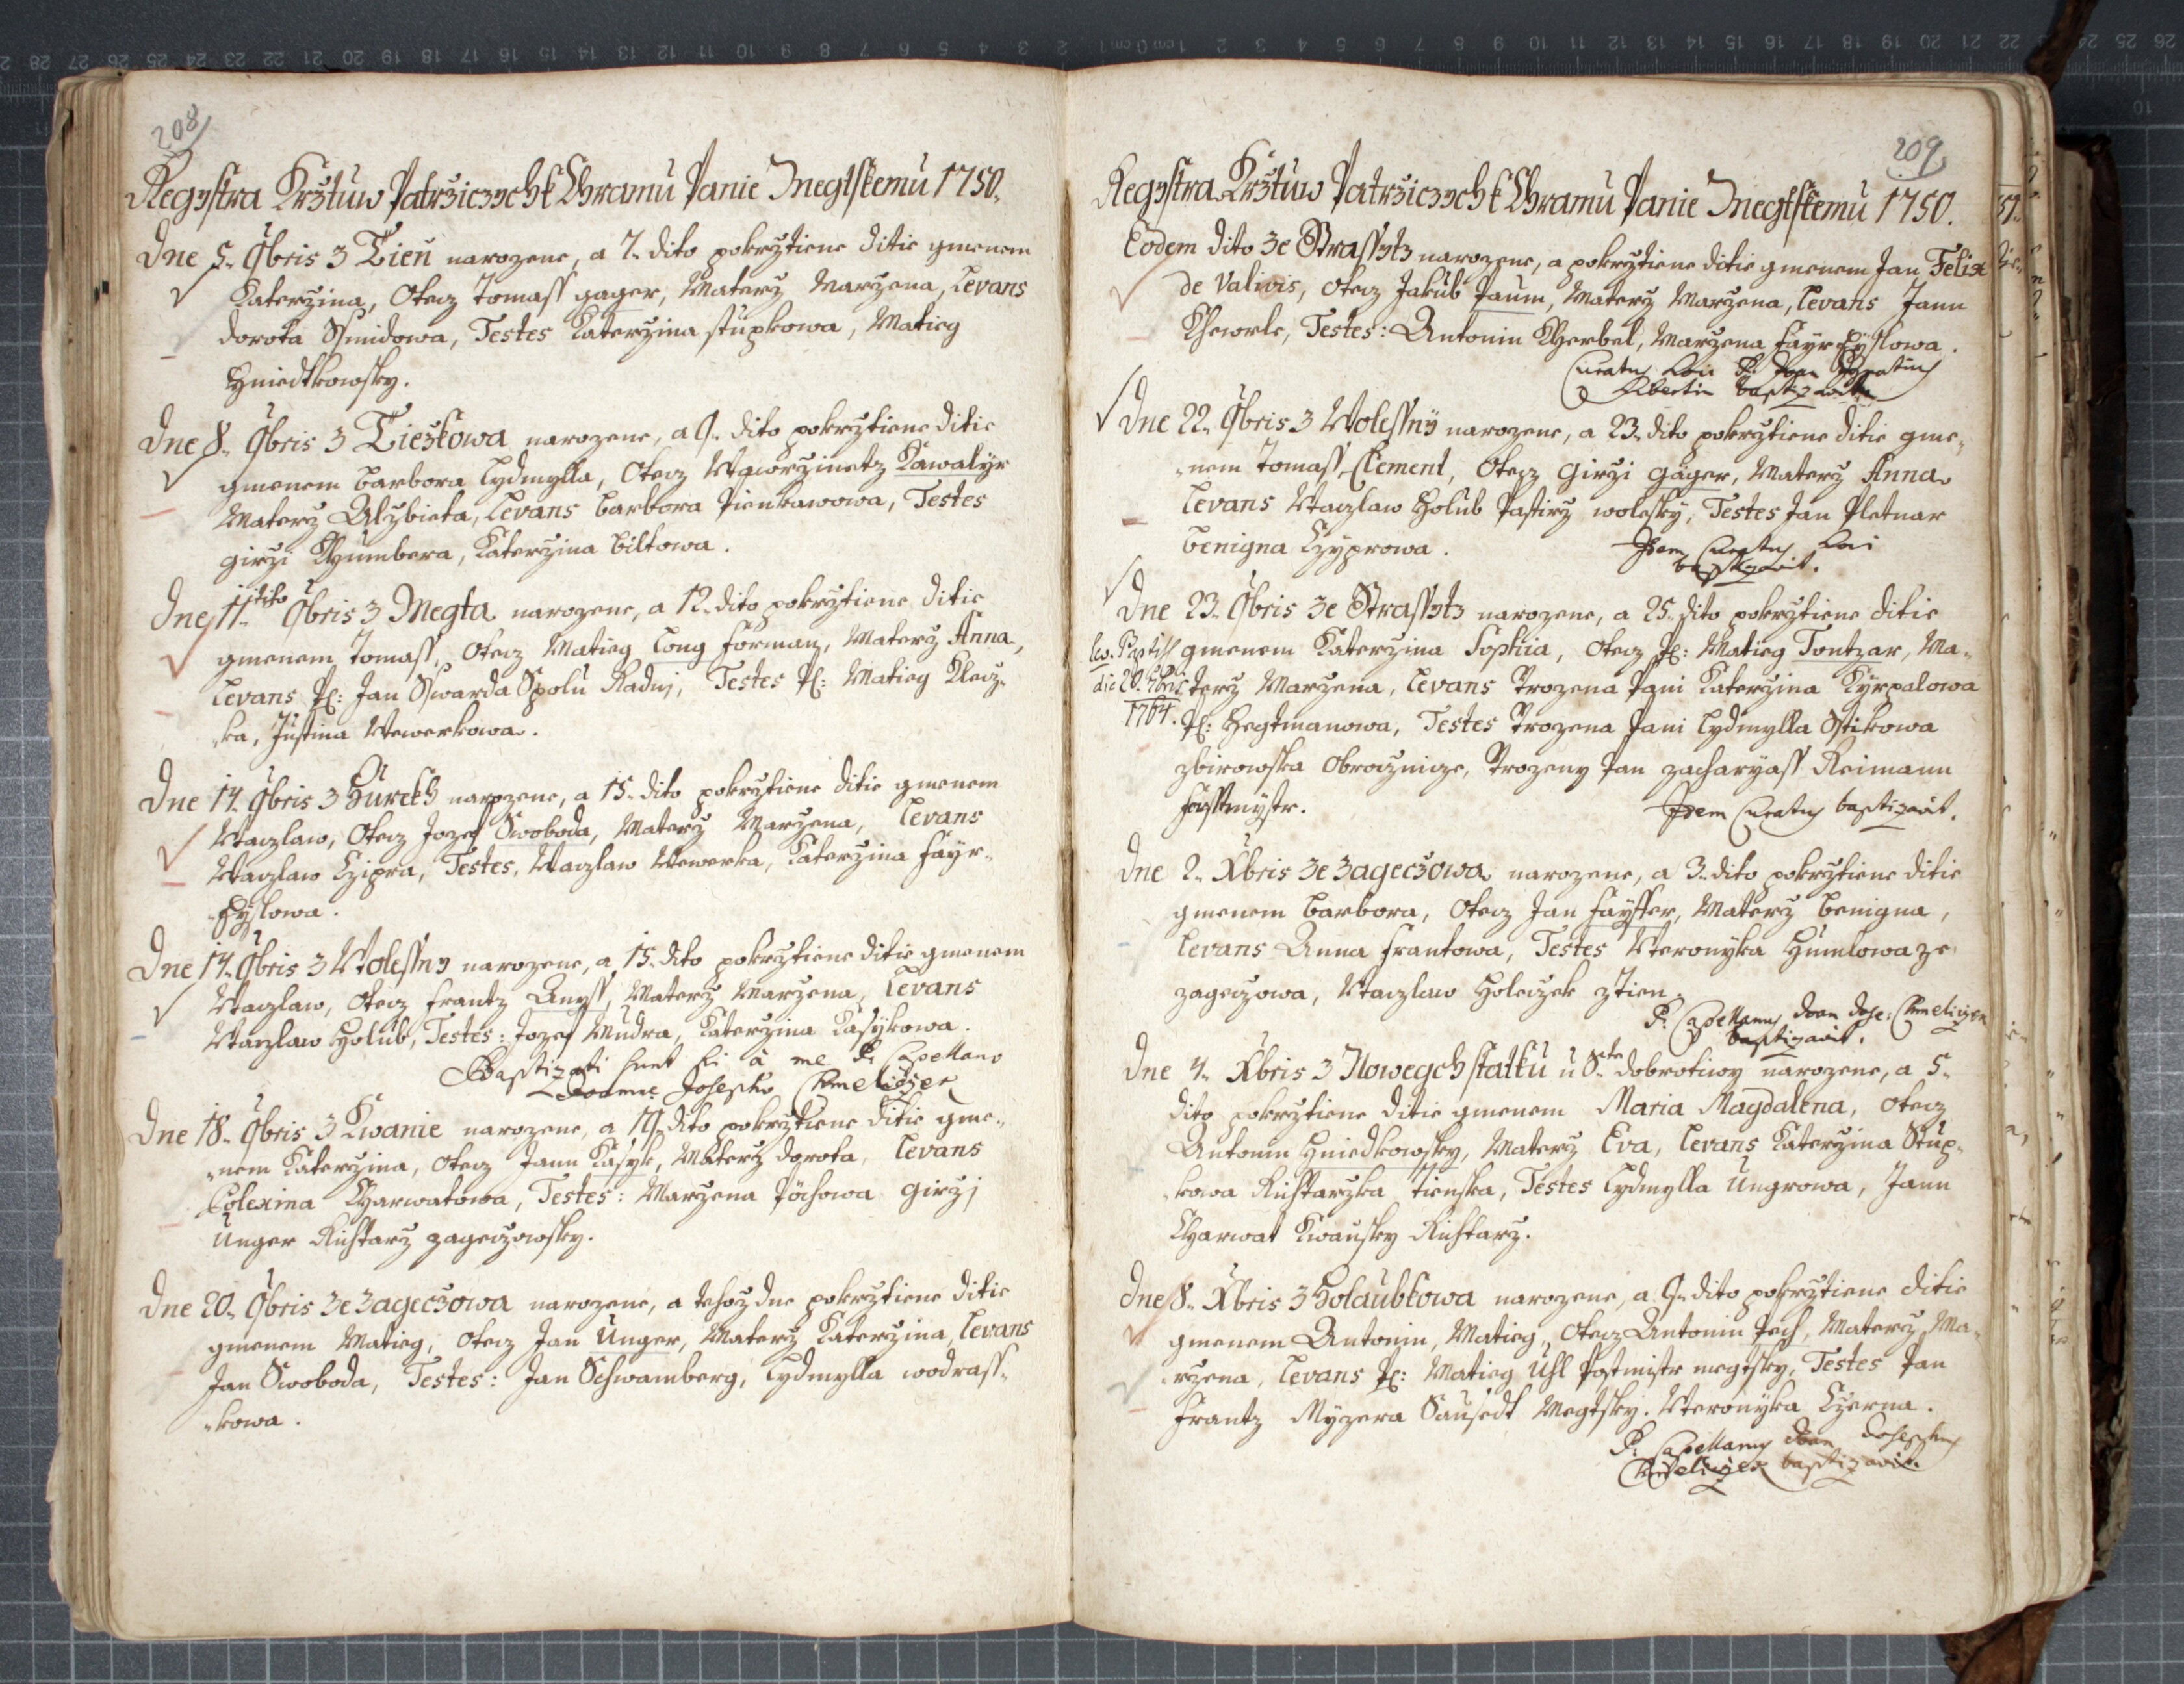 208
Regystra Krztuw Patrziczych k Chramu Panie Megtskemu 1750.
Dne 5. 9bris z Tien narozene, a 7. dito pokrztiene ditie gmenem
Katerzina, Otecz Tomass gager, Materz Marzena, Levans
dorota Ssmidowa, Testes Katerzina stupkowa, Matieg
Hniedkowsky.
Dne 8. 9bris z Tieskowa narozene, a 9. dito pokrztiene ditie
gmenem barbora Lydmylla, Otecz Wawrzinetz Kawalyr
Materz Alzbieta, Levans barbora Pienkawowa, Testes
girzi Chumbera, Katerzina biltowa.
Dne 11. dito 9bris z Megta narozene, a 12. dito pokrztiene ditie
gmenem Tomass, Otecz Matieg Long forman, Materz Anna,
Levans Pl: Jan Swarda Spolu Radnj, Testes Pl: Matieg Klecz-
ka, Justina Wewerkowa.
Dne 14. 9bris z Hurek narozene, a 15. dito pokrztiene ditie gmenem
Waczlaw, Otecz Jozef Swoboda, Materz Marzena, Levans
Waczlaw Czipra, Testes, Waczlaw Wewerka, Katerzina fayr-
fyslowa.
Dne 14. 9bris z Wolessny narozene, a 15. dito pokrztiene ditie gmenem
Waczlaw, Otecz frantz Anyss, Materz Marzena, Levans
Waczlaw Holub, Testes: Jozef Mudra, Katerzina Kasykowa.
Baptizati sunt hi à me P. Capellano
Joanne Josepho
Dne 18. 9bris z Kwanie narozene, a 19. dito pokrztiene ditie gme-
nem Katerzina, Otecz Jann Kasyk, Materz dorota, Levans
Polexina Charwatowa, Testes: Marzena Pöchowa girzj
Unger Richtarz zageczowsky.
Dne 20. 9bris ze Zageczowa narozene, a tehoz dne pokrztiene ditie
gmenem Matieg, Otecz Jan Unger, Materz Katerzina, Levans
Jan Swoboda, Testes: Jan Schwamberg, Lydmylla wodrass-
kowa.
209
Regystra Krztuw Patrziczych k Chramu Panie Megtskemu 1750.
Eodem dito ze Strassytz narozene, a pokrztiene ditie gmenem Jan Felix
de Valivis, Otecz Jakub Paum, Materz Marzena, Levans Jann
Chewele, Testes: Antonin Cherbel, Marzena fayrfyslowa.
Curatus Loci P. Joan
baptizavit
Dne 22. 9bris z Wolessny narozene, a 23. dito pokrztiene ditie gme-
nem Tomass Clement, Otecz Girzi gäger, Materz Anna
Levans Waczlaw Holub Pastirz wolesky, Testes Jan Pletnar
benigna Czyprowa.
Idem Curatus Loci
baptizavit.
Dne 23. 9bris ze Strassytz narozene, a 25. dito pokrztiene ditie
gmenem Katerzina Sophia, Otecz Pl: Matieg Tontzar, Ma-
die 20. 9bris
1764.
terz Marzena, Levans Trozena Pani Katerzina Kyrpalowa
Pl: Hegtmanowa, Testes Trozena Pani Lydmylla Stikowa
zbirowska Obrocznicze, Trozeny Pan zacharyass Reimann
fossmystr.
Idem Curatus baptizavit.
Dne 2. Xbris ze Zageczowa narozene, a 3. dito pokrztiene ditie
gmenem barbora, Otecz Jan fayffer, Materz benigna,
Levans Anna frantowa, Testes Weronyka Humlowa ze
zageczowa, Waczlaw Holeczek ztien.
P. Capellanus Joan Jose:
baptizavit.
Dne 4. Xbris z Nowegch statku u Ste dobrotiwy narozene, a 5.
dito pokrztiene ditie gmenem Maria Magdalena, Otecz
Antonin Hniedkowsky, Materz Eva, Levans Katerzina Stup-
kowa Richtarzka tienska, Testes Lydmylla Ungrowa, Jann
Charwat Kwansky Richtarz.
Dne 8. Xbris z Holaubkowa narozene, a 9. dito pokrztiene ditie
gmenem Antonin, Matieg, Otecz Antonin Pech, Materz Ma-
rzena, Levans Pl: Matieg Uhl Postmistr megtsky, Testes Pan
Frantz Myzera Sausedt Megtsky. Weronyka Czerna.
P. Capellanus Joan Josephus
baptizavit.